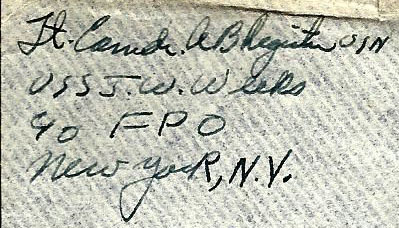 Lt. Comdr. A B Register USN
USS J. W. Weeks
c/o FPO
New York, N.Y.